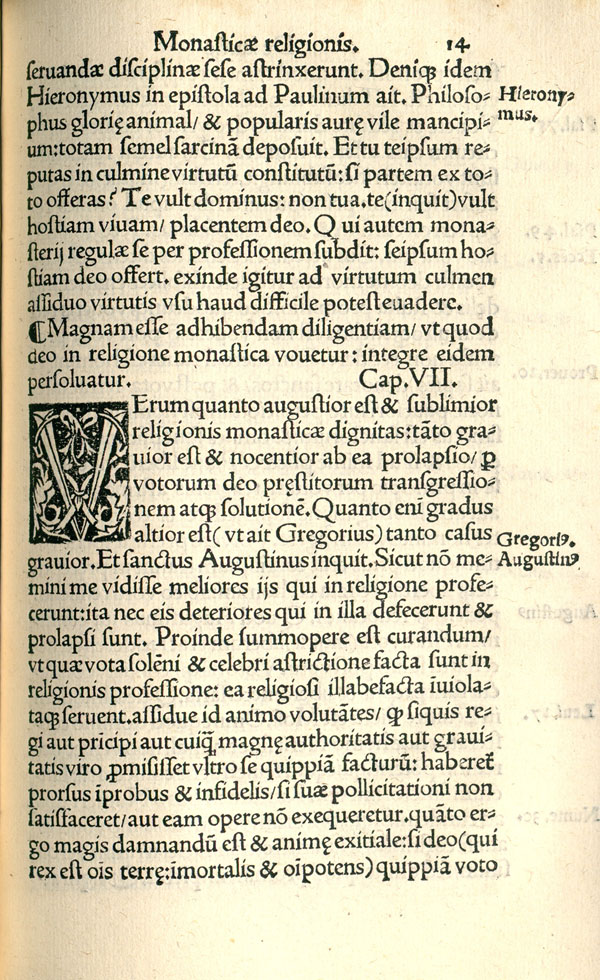 Monasticæ religionis. 14
seruandæ disciplinæ sese astrinxerunt. Deniqꝫ idem
Hieronymus in epistola ad Paulinum ait. Philoso⸗ Hierony⸗
phus glorię animal/ & popularis aurę vile mancipi⸗ mus.
um:totam semel sarcinā deposuit. Et tu teipsum re⸗
putas in culmine virtutū constitutū: si partem ex to⸗
to offeras? Te vult dominus: non tua. te(inquit)vult
hostiam viuam/ placentem deo. Qui autem mona⸗
sterij regulæ se per professionem subdit: seipsum ho⸗
stiam deo offert. exinde igitur ad virtutum culmen
assiduo virtutis vsu haud difficile potest euadere.
¶Magnam esse adhibendam diligentiam/ vt quod
deo in religione monastica vouetur: integre eidem
persoluatur. Cap.VII.
VErum quanto augustior est & sublimior
religionis monasticæ dignitas:tāto gra⸗
uior est & nocentior ab ea prolapsio/ ꝑ
votorum deo pręstitorum transgressio⸗
nem atqꝫ solutionē. Quanto eni gradus
altior est( vt ait Gregorius) tanto casus Gregoriꝰ.
grauior. Et sanctus Augustinus inquit. Sicut nō me⸗ Augustinꝰ
mini me vidisse meliores ijs qui in religione profe⸗
cerunt:ita nec eis deteriores qui in illa defecerunt &
prolapsi sunt. Proinde summopere est curandum/
vt quæ vota solēni & celebri astrictione facta sunt in
religionis professione: ea religiosi illabefacta iuiola⸗
taqꝫ seruent. assidue id animo volutātes/ ꝙ siquis re⸗
gi aut prīcipi aut cuiqꝫ̄ magnę authoritatis aut graui⸗
tatis viro ꝓmisisset vltro se quippiā facturū: haberet̄
prorsus īprobus & infidelis/ si suæ pollicitationi non
satisfaceret/ aut eam opere nō exequeretur. quāto er⸗
go magis damnandū est & animę exitiale: si deo(qui
rex est oīs terrę:īmortalis & oīpotens) quippiā voto